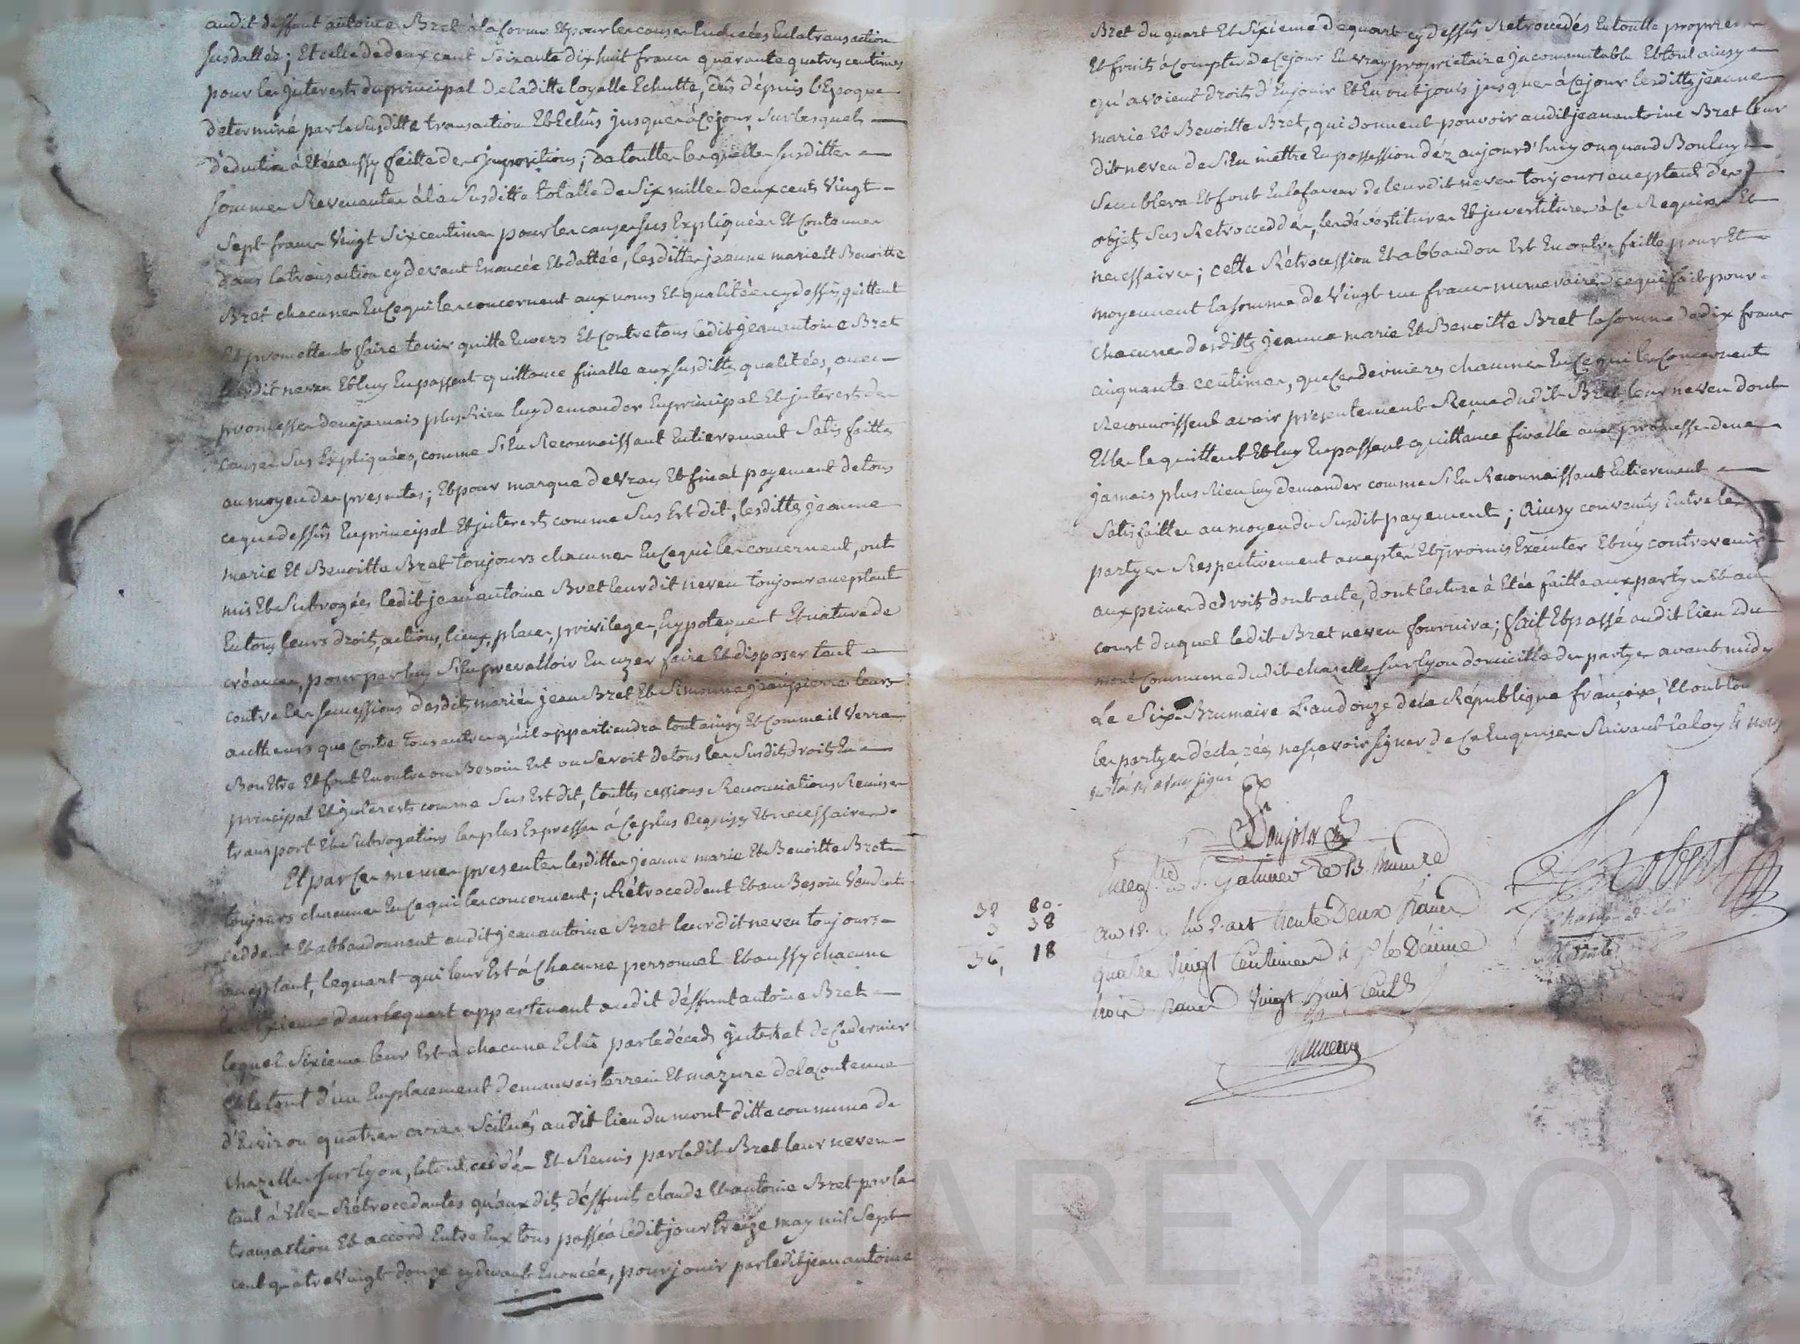 audit deffunt antoine Bret à la forme Et pour les causes Enoncées En la transaction
susdattée; Et celle de deux cent Soixante dix huit francs quarante quatres centimes
pour les jnterests du principal de laditte loyalle Echutte, dûs depuis l'Epoque
determiné par la Susditte transaction Et Echûs jusques à Ce jour, Sur lesquels
déduction à Etée aussy faitte des jmpositions; de touttes lesquelles susdittes
sommes Revenantes à la Susditte totalle de Six milles deux cents Vingt
Sept francs Vingt Six centimes pour les causes sus Expliquées Et Contenues
dans la transaction cy devant Enoncée Et dattée, lesdittes jeanne marie Et Benoitte
Bret chacunes En Ce qui les concernent aux noms Et qualitées cy dessûs, quittent
Et promettent faire tenir quitte Envers Et Contre tous ledit jean antoine Bret
leurdit neveu Et luy En passent quittance finalle aux susdittes qualitées, avec
promesse de ne jamais plus Rien luy demander En principal Et jnterests des
causes Sus Expliquées, comme S'En Reconnaissant Entierement Satisfaittes
au moyen des presentes; Et pour marque de Vray Et final payement de tous
ce que dessûs En principal Et jnterests comme Sus Est dit, lesdittes jeanne
marie Et Benoitte Bret toujours chacunes En Ce qui les concernent, ont
mis Et Subrogées ledit jean antoine Bret leurdit neveu toujours aceptant
En tous leurs droits, actions, lieux, places, privileges, hypoteques Et nature de
créances, pour par luy S'En prevalloir En uzer faire Et disposer tant
contre les Successions desdits mariés jean Bret Et Simonne jeanpierre leurs
autheurs que Contre tous autres qu'il appartiendra tout ainsy Et Comme il Verra
Bon Etre Et font En outre au Besoin Est ou Seroit de tous les Susdits droits En
principal Et jnterests comme Sus Est dit, touttes cessions Renonciations Remises
transport Et Subrogations les plus Expresses à Ce plus Requises Et necessaires.
Et par Ces mêmes presentes lesdittes jeanne marie Et Benoitte Bret
toujours chacunes En Ce qui les concernent; Rétroceddent Et au Besoin Vendent
ceddent Et abbandonnent audit jean antoine Bret leurdit neveu toujours
aceptant, le quart qui leur Est à Chacune personnel Et aussy chacune
le Sixieme dans le quart appartenant audit déffunt antoine Bret
lequel Sixieme leur Est à chacune Echû par le décès jntestat de Ce dernier
Et le tout d'un Emplacement de mauvais terrein Et mazure de la Contenue
d'Environ quatres ares Scitués audit lieu du mont ditte commune de
chazelles sur lyon, le tout ceddés Et Remis par ledit Bret leur neveu
tant à Elles Rétrocedantes qu'aux dits déffunts claude Et antoine Bret par la
transaction Et accord Entre Eux tous passéà ledit jour treize may mil Sept
cent quatre Vingt douze cy devant Enoncée, pour jouir par ledit jean antoine
Bret du quart Et Sixieme de quart cy dessûs Retroccedés En toutte propriete
Et fruits à Compter de Ce jour En Vray proprietaire jncommutable Et tout ainsy
qu'avoient droits d'En jouir Et En ont jouis jusques à Ce jour lesdittes jeanne
marie Et Benoitte Bret, qui donnent pouvoir audit jean antoine Bret leur
dit neveu de S'En mettre En possession dèz aujourd'huy ou quand Bon luy
Semblera Et font En la faveur de leurdit neveu toujours aceptant des
objets Sus Retroceddés, les dévestitures Et jnvestitures à Ce Requises Et
necessaires; cette Rétrocession Et abbandon Est En outre faitte pour Et
moyennent la Somme de Vingt un francs numeraire, ce qui fait pour
chacunes desdittes jeanne marie Et Benoitte Bret la Somme de dix francs
cinquante centimes, que Ces derniers chacunes En Ce qui les Concernent
Reconnoissent avoir presentement Reçue dudit Bret leur neveu dont
Elles le quittent Et luy En passent quittance finalle avec promesse de ne
jamais plus Rien luy demander comme S'En Reconnaissant Entierement
Satisfaittes au moyen du Susdit payement; Ainsy convenûs Entre les
partyes Respectivement aceptés Et promis Exécuter Et n'y contrevenir
aux peines de droits, dont acte, dont lecture à Etée faitte aux partyes Et au
court duquel ledit Bret neveu fournira; fait Et passé audit lieu du
mont Commune dudit chazelles sur lyon domicille des partyes avant midy
Le Six Brumaire L'an onze de la République françoise, Et ont tous
les partyes déclarées ne sçavoir signer de Ce Enquises Suivant la loy &
Bonjour
Enreg.tré à S. Galmier le 13 Brumaire
32 80.
3 28 an 12. trente Deux francs
36, 18
quatre vingt centimes
trois francs Vingt huit cent.s
CHAREYRON